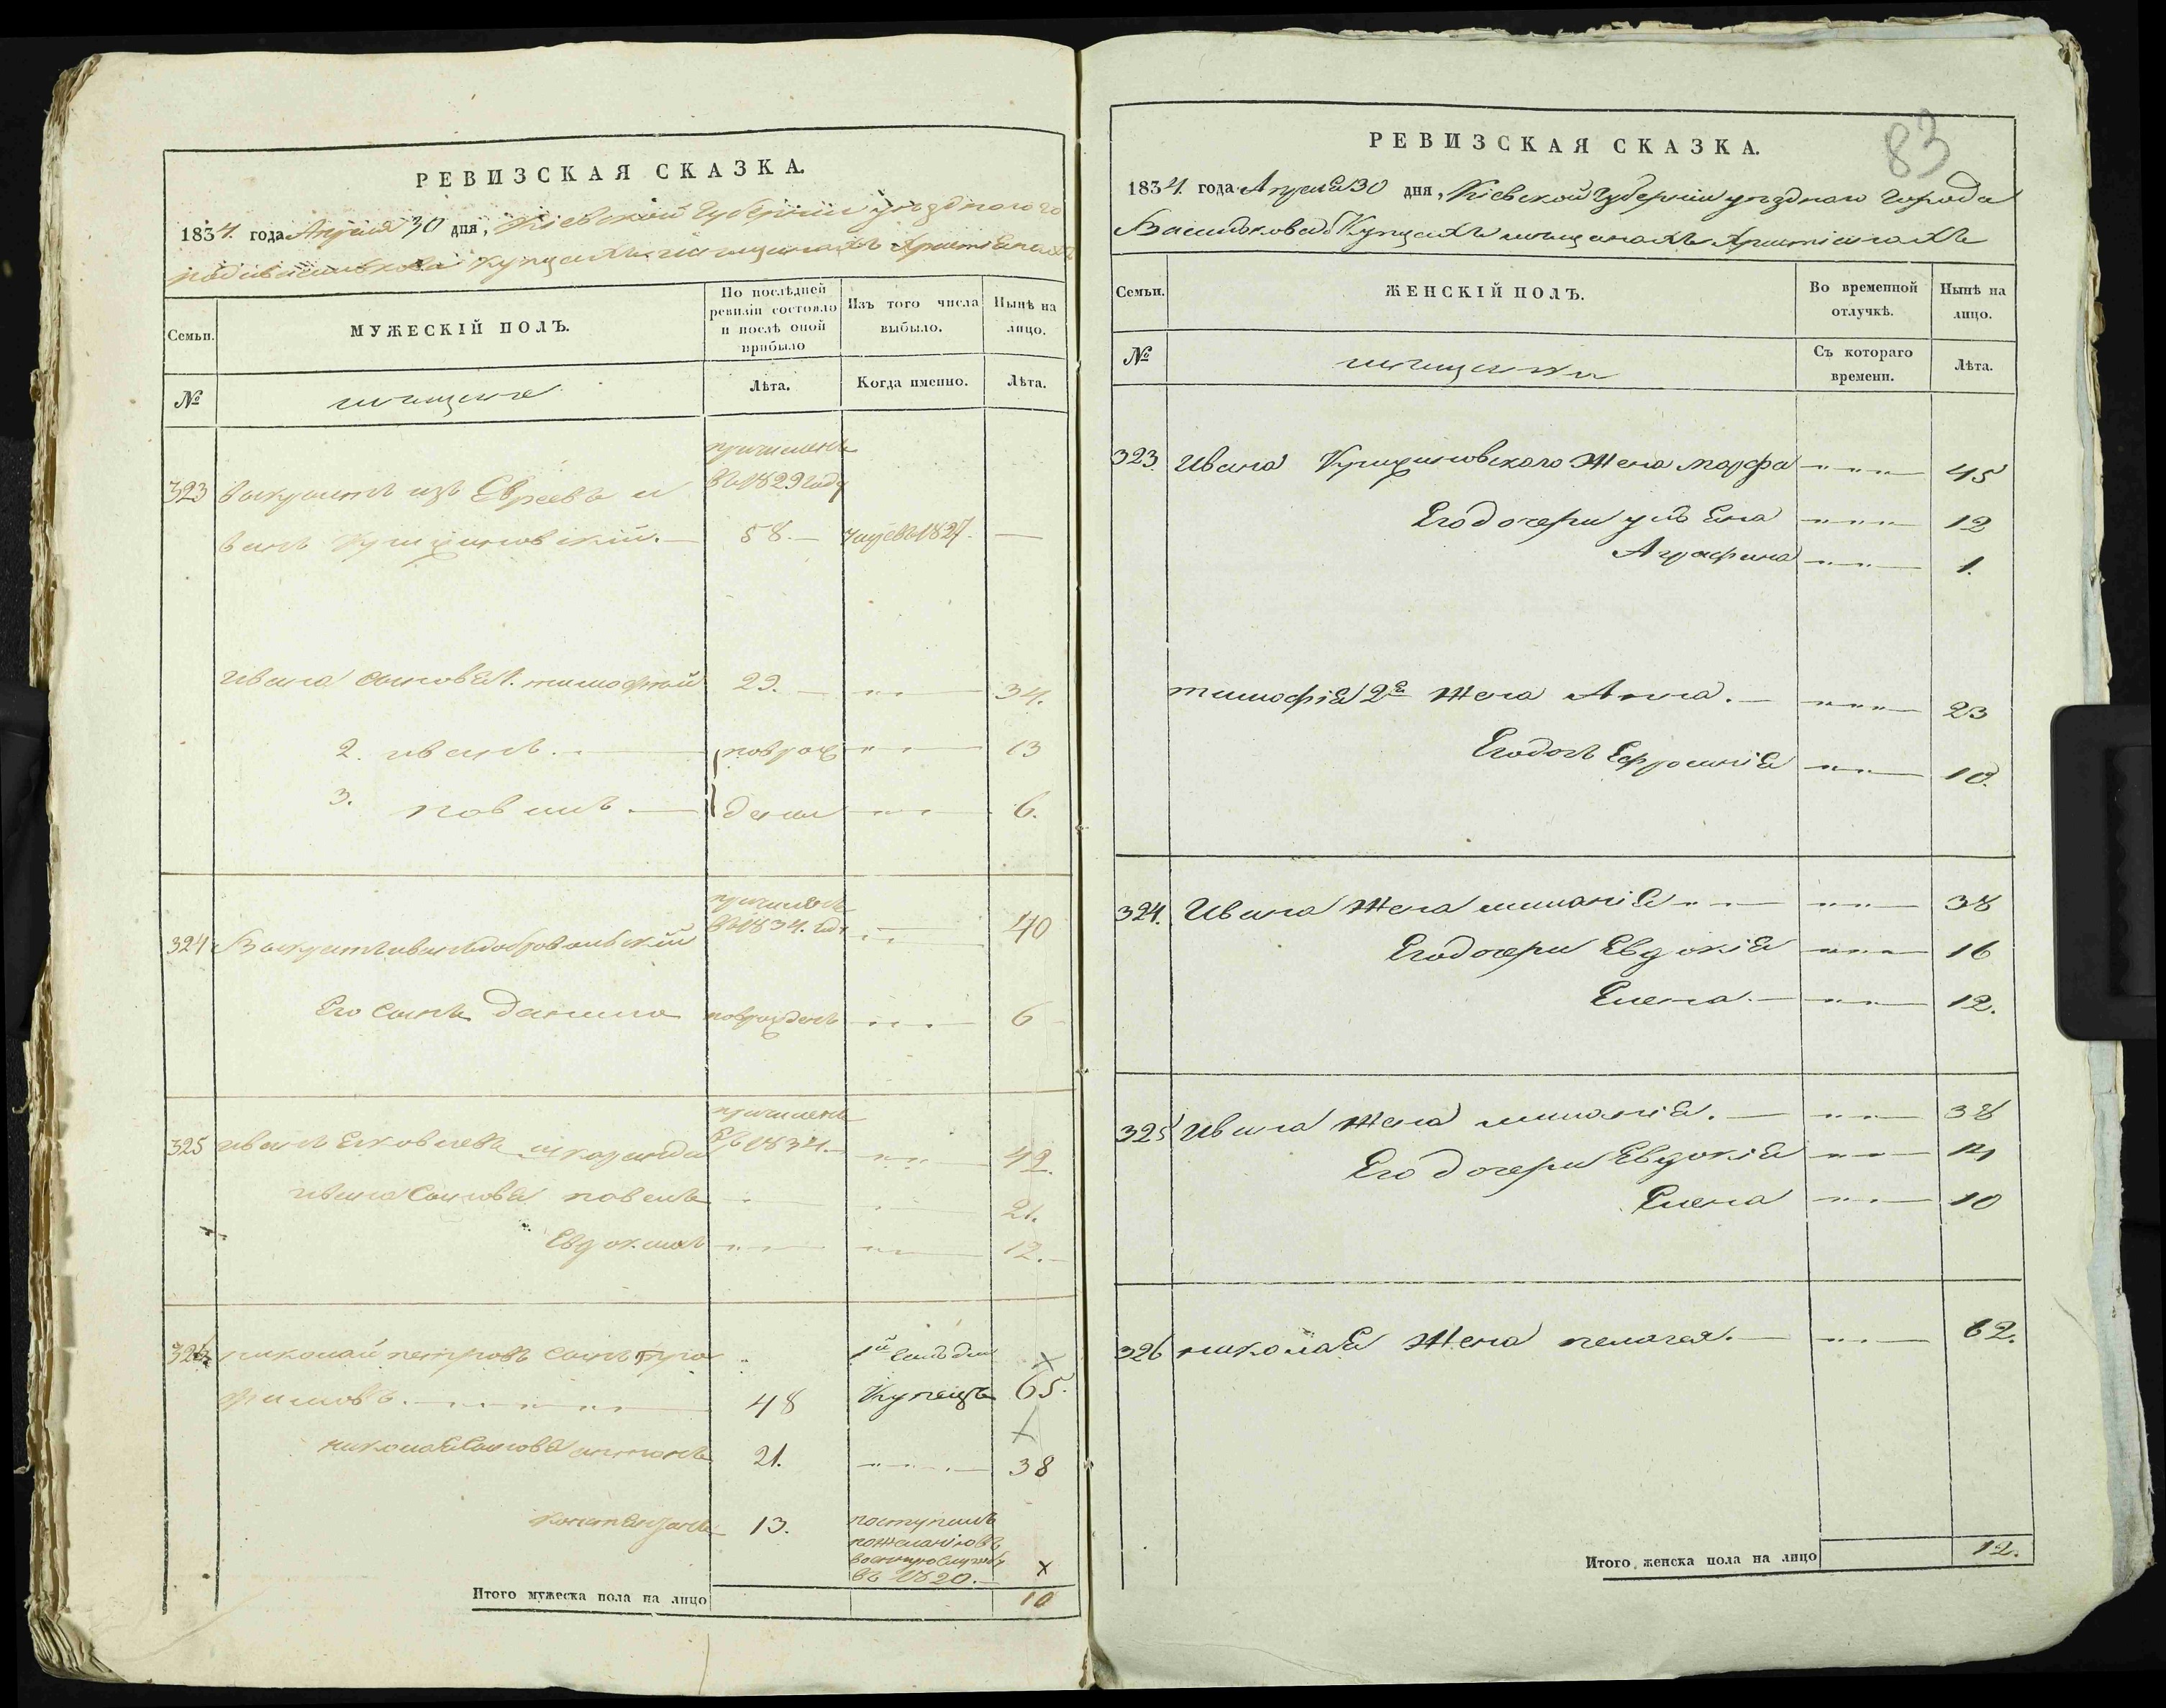 РЕВИЗСКАЯ СКАЗКА.
1834. года Апреля 30 дня, Кіевской Губерніи уезднаго го
рода Василькова купцахъ мещанахъ Христіанахъ
Семьи.
МУЖЕСКІЙ ПОЛЪ.
По послѣдней
ревизіи состояло
и послѣ оной
прибыло
Изъ того числа
выбыло.
Нынѣ на
лицо.
№
мещане
Лѣта.
Когда именно.
Лѣта.
причисленъ
323 Выкрестъ изъ Евреевъ и въ 1829 году
ванъ 58.
Ивана сыновья 1. тимофей 29. 34.
2. иванъ. новрож 13
3. павелъ дены 6.
причисленъ
324 Выкрестъ иванъ добровольскій въ 1834. году 40
Его сынъ данило новрожденъ 6
причисленъ
325 иванъ въ 1834. 42.
ивана сыновья павелъ 21.
Евдокимъ 12.
326 николай петровъ сынъ тро
фимовъ. 48 Купецъ 65.
николая сыновья антонъ 21. 38
константинъ 13. поступилъ
пожеланію въ
военную службу
въ 1820. x
Итого мужеска пола на лицо 10
83
РЕВИЗСКАЯ СКАЗКА.
1834. года Апреля 30 дня, Кіевской Губерніи уезднаго города
Василькова о Купцахъ мещанахъ Христіанахъ
Семьи.
ЖЕНСКІЙ ПОЛЪ.
Во временной
отлучкѣ.
Нынѣ на
лицо.
№
мещанки
Съ котораго
времени.
Лѣта.
323. Ивана жена марфа 45
Его дочери 12
Аграфина 1.
тимофія 2я жена Анна. 23
Его дочь Ефросинія 10.
324. Ивана жена меланія 38
Его дочери Евдокія 16
Елена 12.
325 Ивана жена меланія. 38
Его дочери Евдокія 14
Елена 10
326 николая жена пелагея. 62.
Итого женска пола на лицо 12.